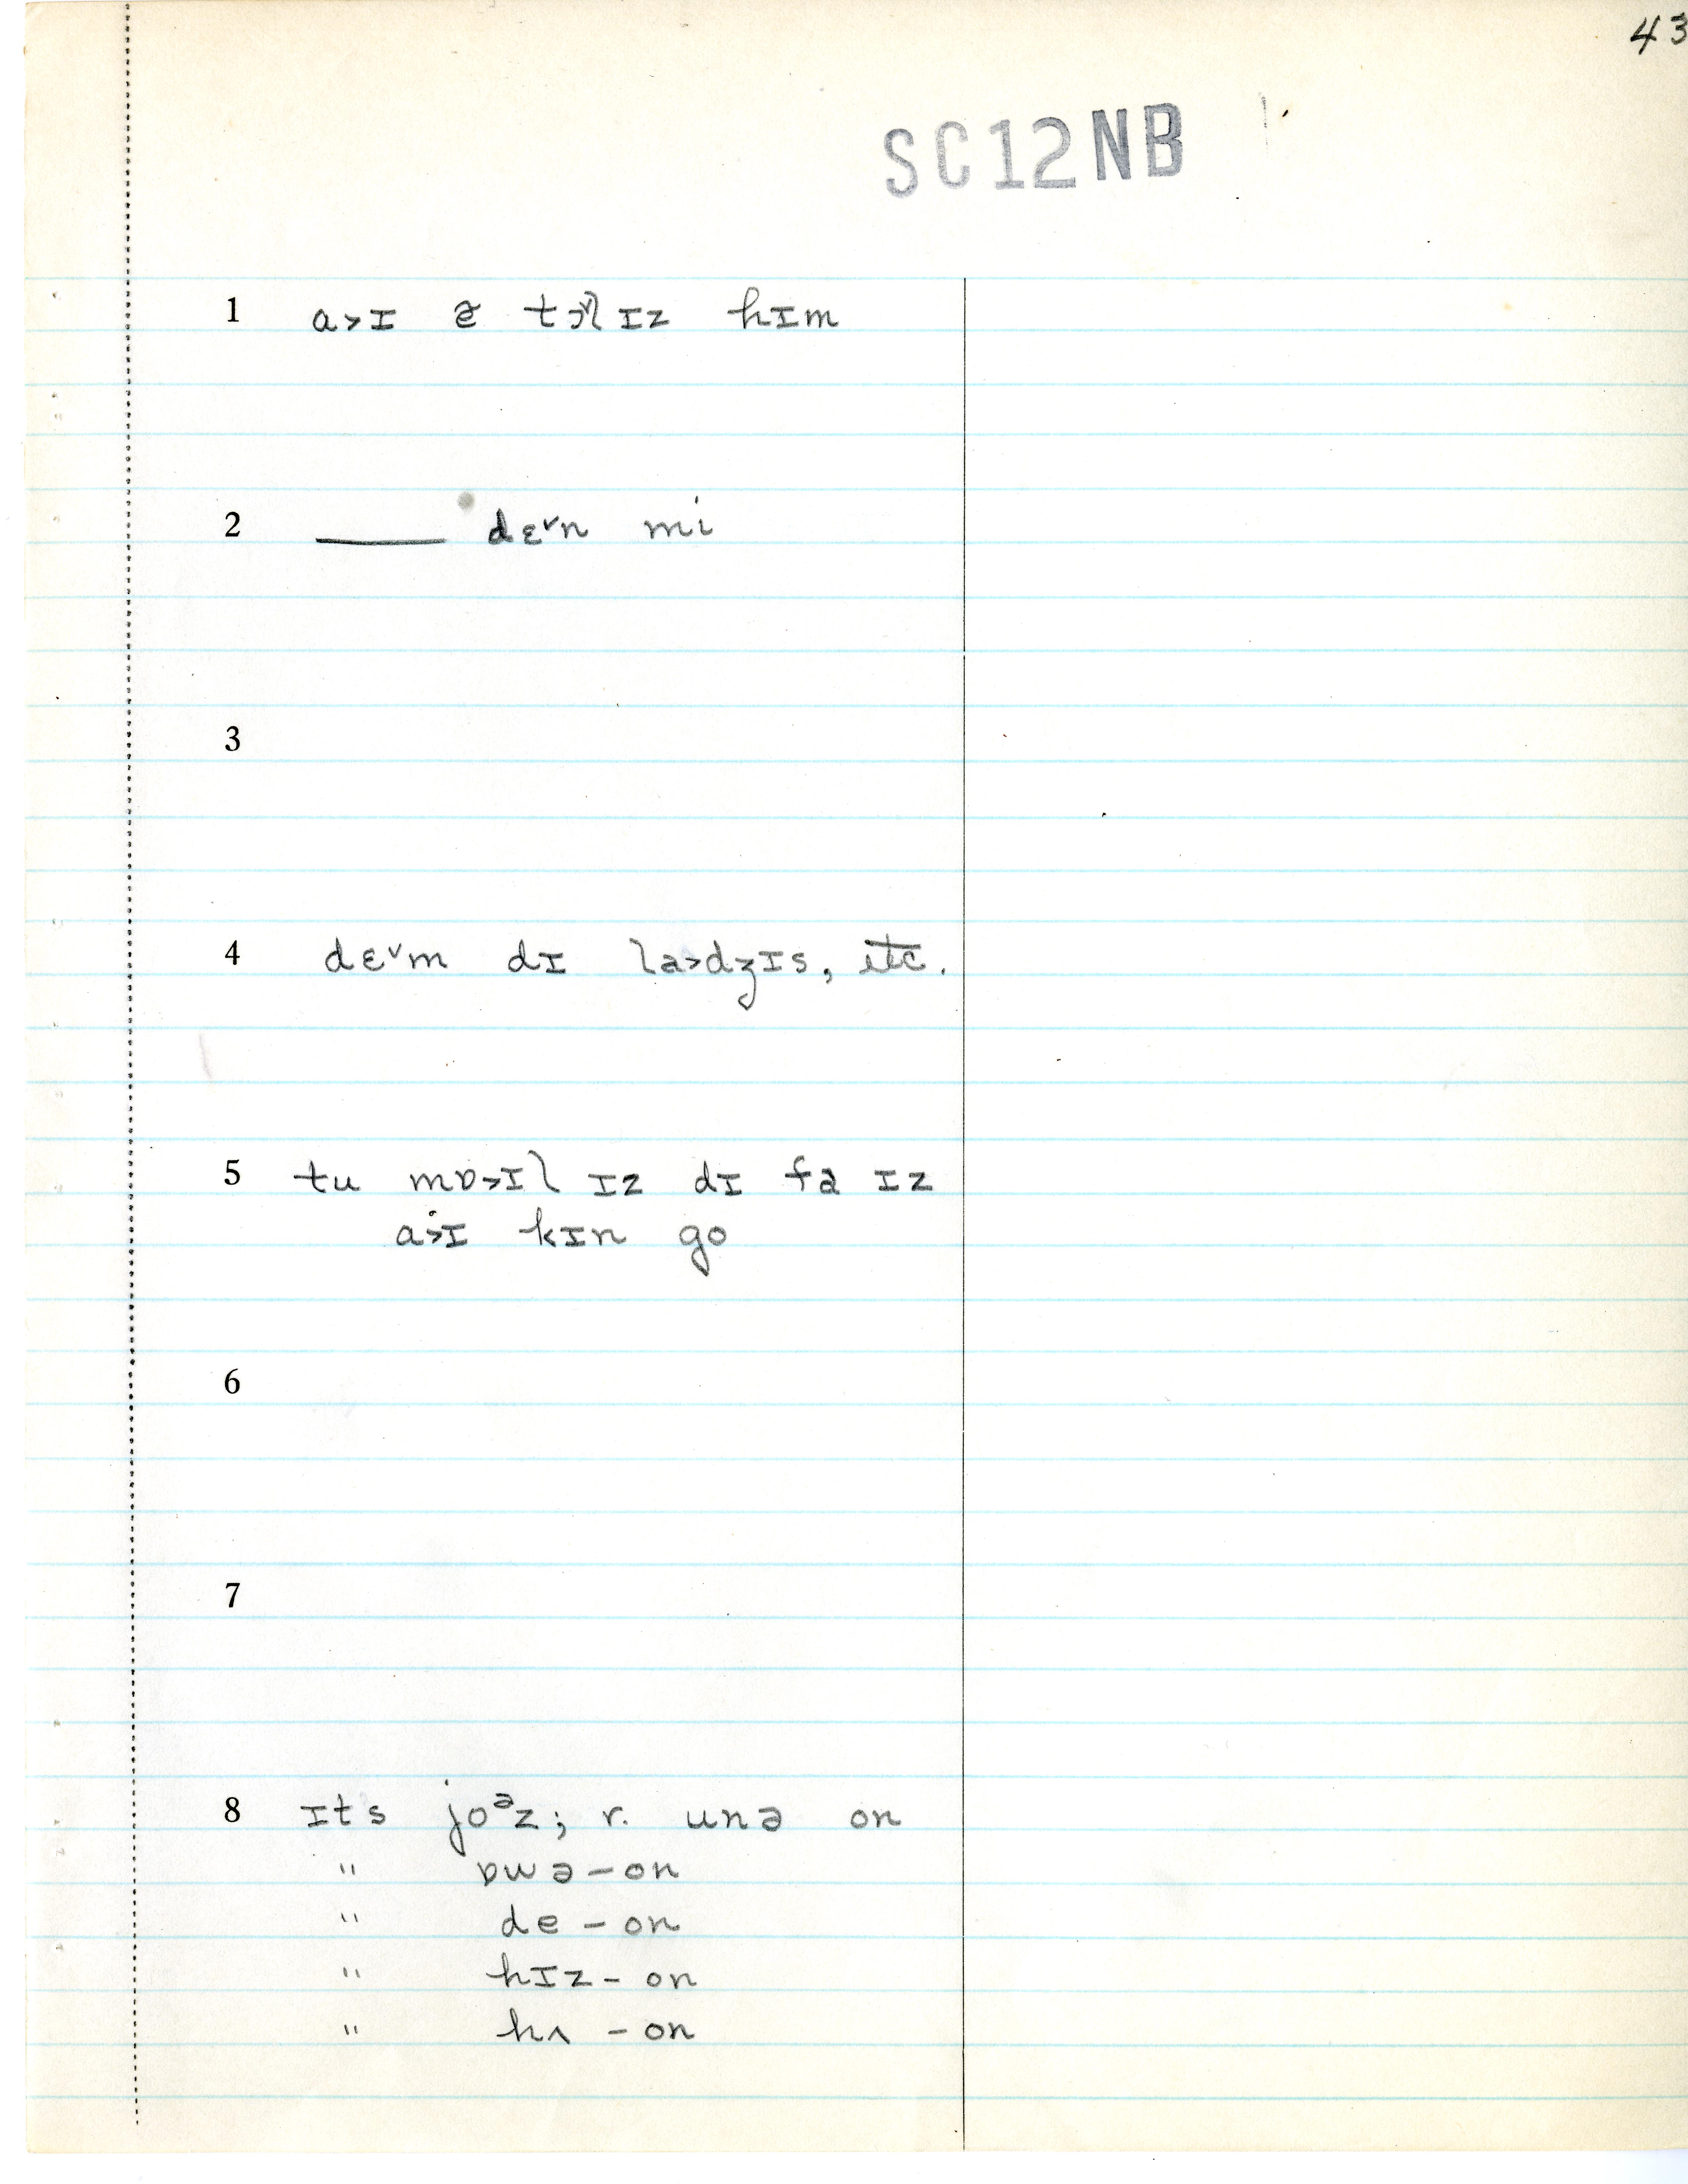 43
SC12NB
1 a>ɪ ɪz hɪm
2 ____ dɛ˅n mi
3
4 dɛ˅m dɪ la>dʒɪs, etc.
5 tu mɒ>ɪl ɪz dɪ fa ɪz
a>ɪ kɪn go
6
7
8 ɪts joᵊz; r. unə on
" ɒwə – on
" de – on
" hɪz – on
" hʌ – on